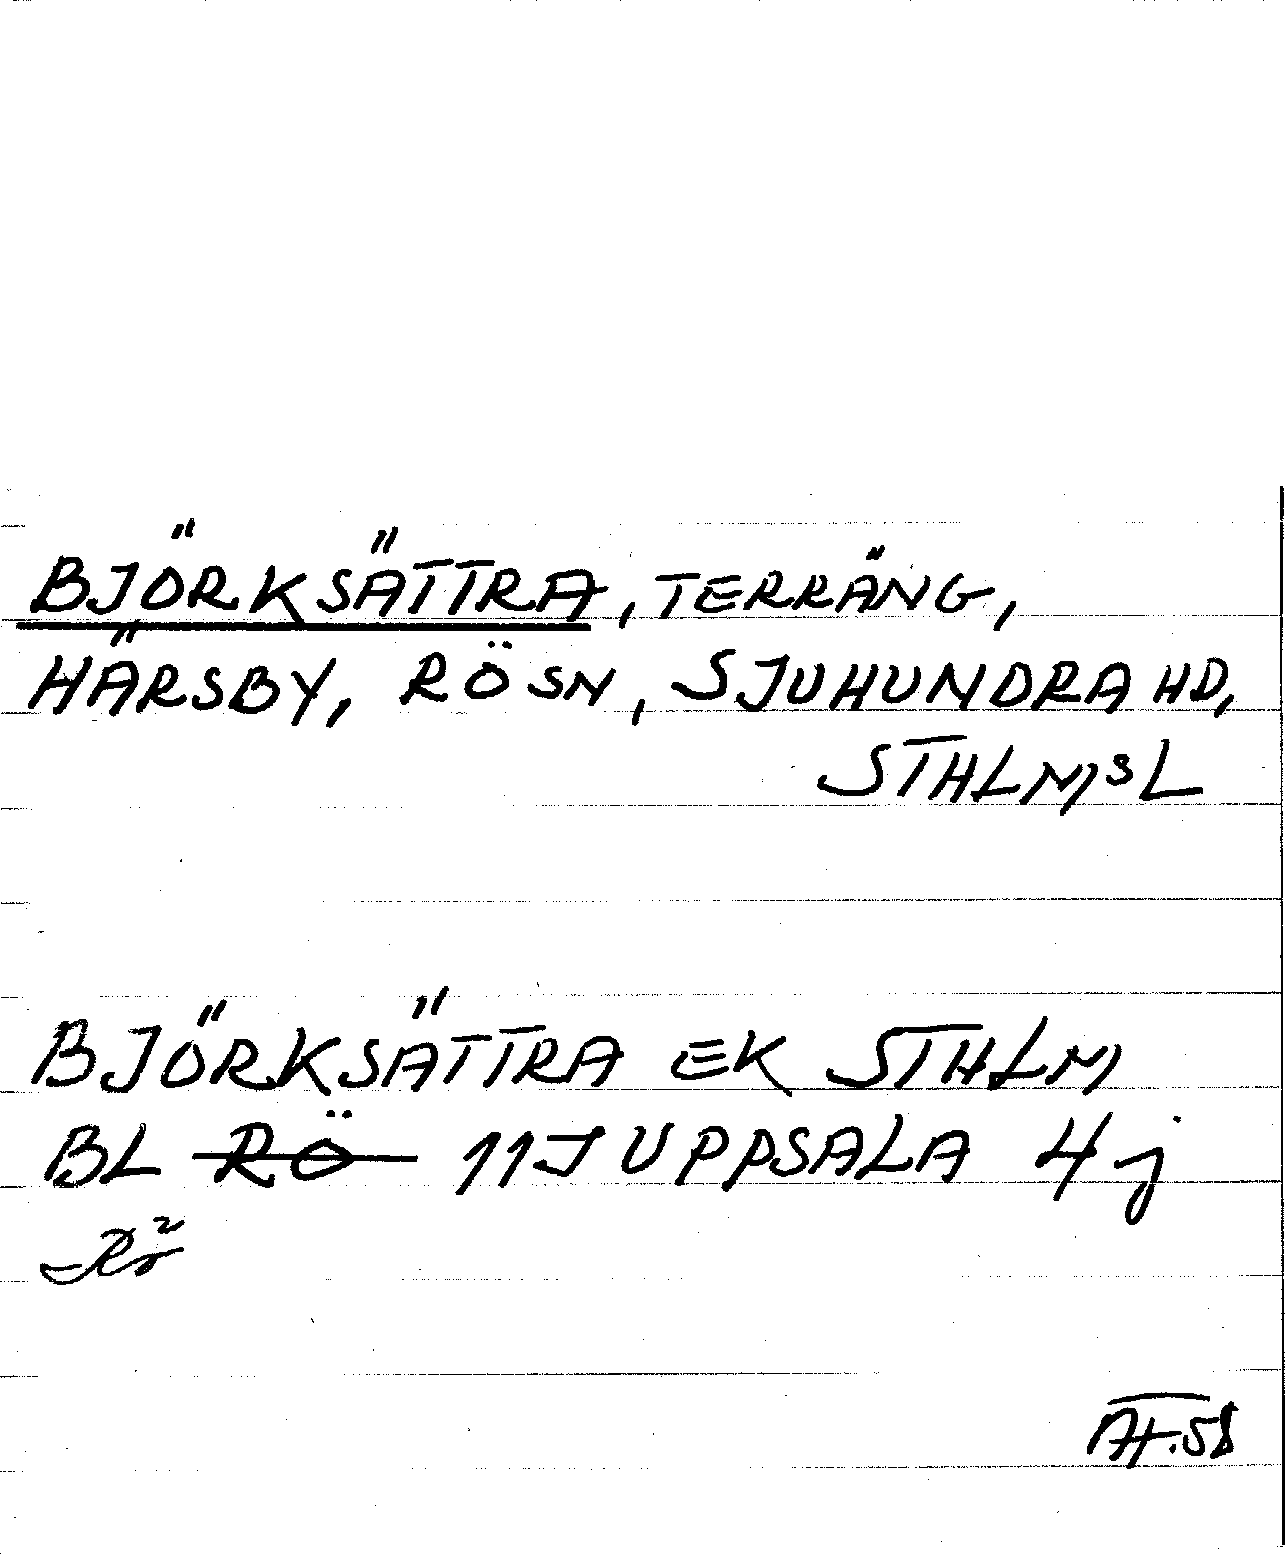 BJÖRKSÄTTRA, TERRÄNG,
HÄRSBY, RÖ SN, SJUHUNDRA HD,
STHLMS L
BJÖRKSÄTTRA EK STHLM
BL RÖ 11J UPPSALA 4j
Rö²
AT.58